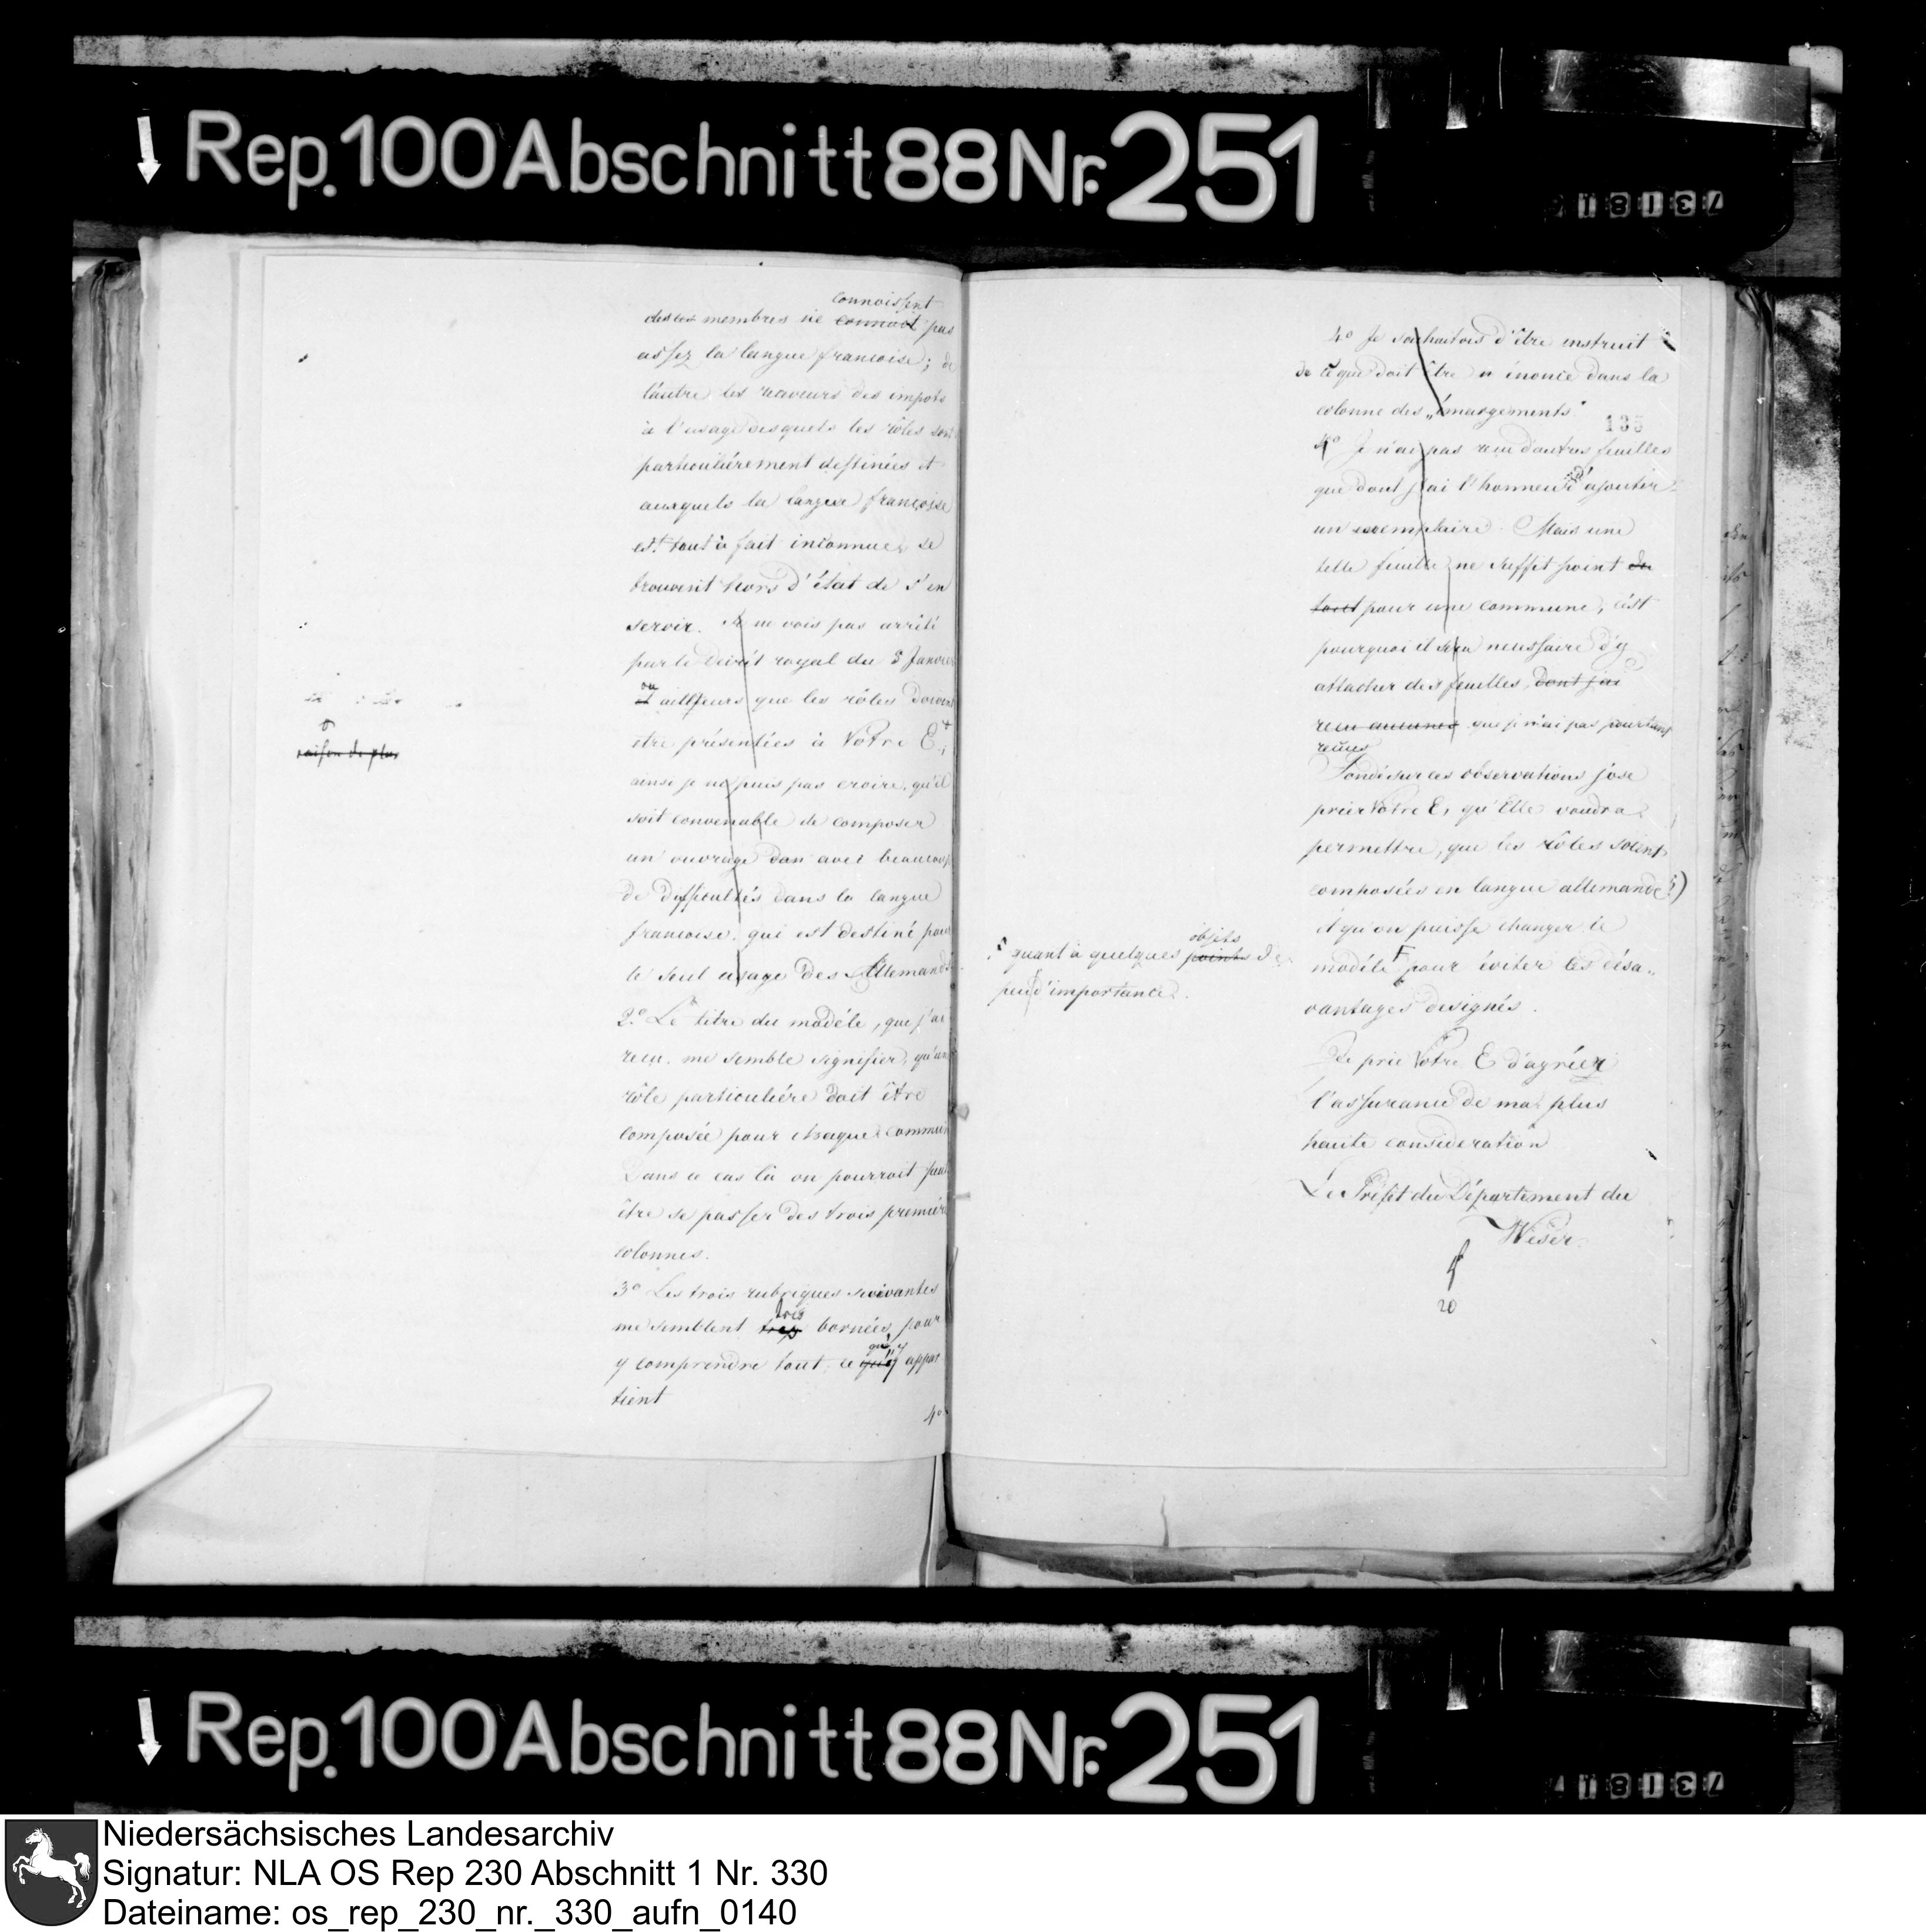 Rep. 100 Abschnitt 88 Nr. 251
731817
connoissent
des ces membres ne connoit pas
assez la langue francoise; de
l'autre les receveurs des impots
à l'usage desquels les rôles sont
particuliérement destinées et
auxquels la langue françoise
est tout à fait inconnue, se
trouvent hors d'état de s'en
servir. Je ne vois pas arrêté
par le decrét royal du 8 Janvier
ou
et ailleurs que les rôles doivent
etre présentées à Votre E.
ainsi je ne puis pas croire, qu'il
soit convenable de composer
un ouvrage dan avec beaucoup
de difficultés dans la langue
francoise, qui est destiné pour
le seul usage des Allemands
raison de plus
2.º Le titre du modéle, que j'ai
recu, me semble signifier, qu'un
rôle particuliére doit être
composée pour chaque commun
Dans ce cas là on pourroit peut
être se passer des trois premiére
colonnes.
3º Les trois rubriques suivantes
trés
me semblent trop bornées, pour
que y
y comprendre tout ce qu'y appar
tient
4º
4º Je souhaitois d'être instruit
de ce que doit être énoncé dans la
colonne des „émargements"
135
4º Je n'ai pas recu d'autres feuilles
que dont j'ai l'honneur d'ajouter
un exemplaire. Mais une
telle feuille ne suffit point du
tout pour une commune, c'est
pourquoi il sera necessaire d'y
attacher des feuilles, dont j'ai
recu aucunes que je n'ai pas pourtant
reçues
Fondé sur ces observations j'ose
prier Votre E, qu'Elle voudra
permettre, que les rôles soient
composées en langue allemande)
et qu'on puisse changer le
modéle pour éviter les désa„
vantages designés.
objets
quant à quelques points de
peu d'importance.
Je prie Votre E d'agréer
l'assurance de ma plus
haute consideration
Le Préfét du Département du
Weser
20
Rep. 100 Abschnitt 88 Nr. 251
731817
Niedersächsisches Landesarchiv
Signatur: NLA OS Rep 230 Abschnitt 1 Nr. 330
Dateiname: os_rep_230_nr._330_aufn_0140